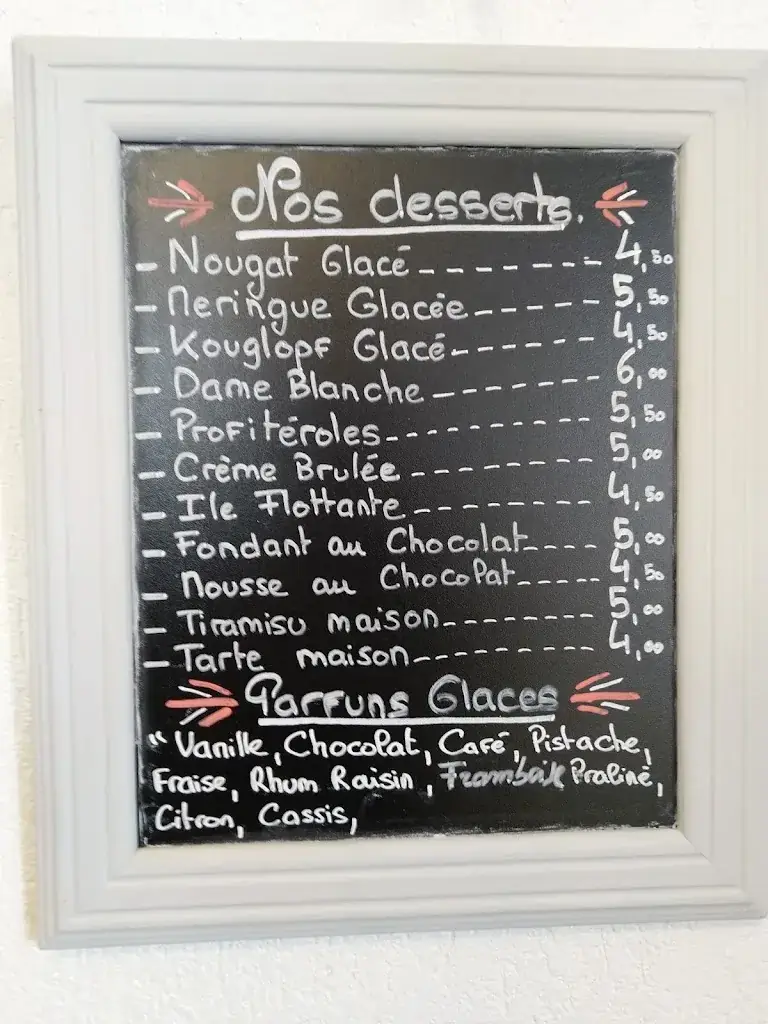 Nos desserts.
- Nougat Glacé -------- 4,50
- Meringue Glacée ------ 5,50
- Kouglopf Glacé ------- 4,50
- Dame Blanche -------- 6,00
- Profitéroles --------- 5,50
- Crème Brulée -------- 5,00
- Ile Flottante -------- 4,50
- Fondant au Chocolat ---- 5,00
- Mousse au Chocolat ----- 4,50
- Tiramisu maison ------- 5,00
- Tarte maison --------- 4,00
Parfuns Glaces
" Vanille, Chocolat, Café, Pistache,
Fraise, Rhum Raisin, Framboise Praliné,
Citron, Cassis,